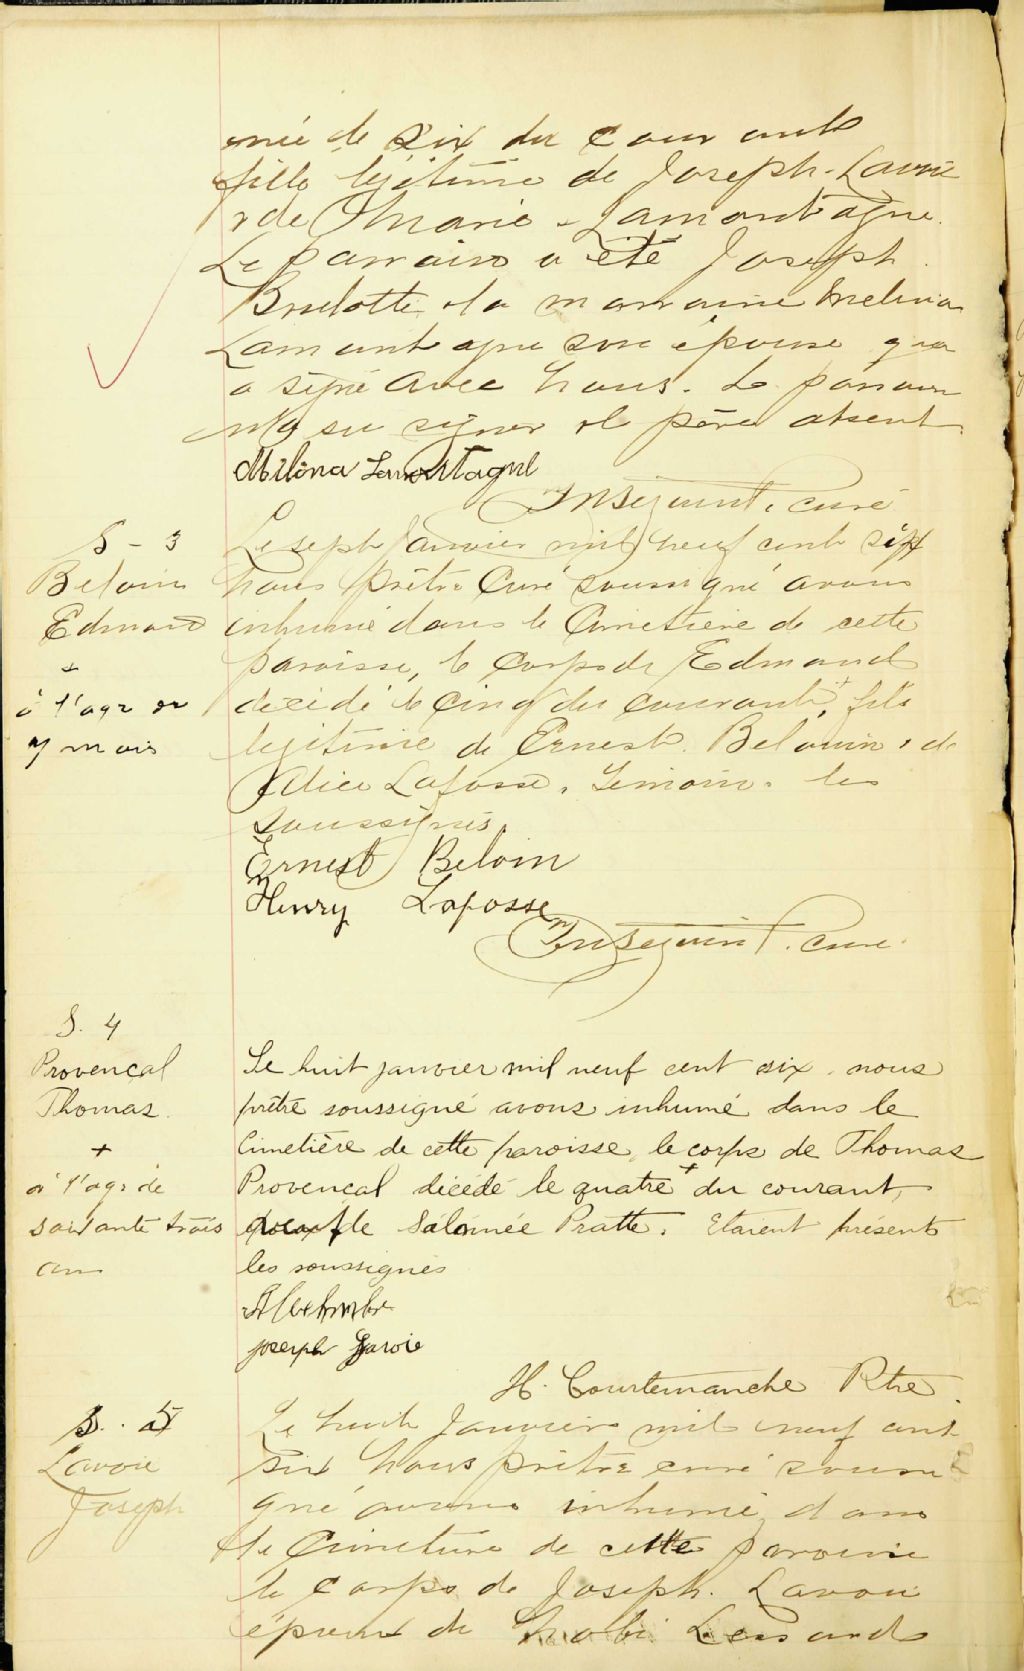 née le six du courant
fille légitime de Joseph Lavoie
& de Marie Lamontagne.
Le parrain a été Joseph
Brulotte & la marraine Melina
Lamontagne son épouse qui
a signé avec nous. Le parrain
n'a su signer & le père absent.
Milina Lamontagne
curé
S - 3
Beloin
Edmond
+
à l'age de
7 mois
Le sept Janvier mil neuf cent six
nous prêtre Curé soussigné avons
inhumé dans le Cimetière de cette
paroisse, le corps de Edmond
décédé le cinq du courant, + fils
légitime de Ernest Belouin & de
Alice Lafosse. Temoins. les
soussignés.
Ernest Beloin
Henry Lafosse
curé.
S. 4
Provencal
Thomas.
+
à l'age de
soixante trois
ans
Le huit janvier mil neuf cent six, nous
prêtre soussigné avons inhumé dans le
Cimetière de cette paroisse, le corps de Thomas
Provencal décédé le quatre + du courant,
de Salomée Pratte. Etaient présents
les soussignés
Joseph Savoie
H. Courtemanche Ptre.
S. 5
Lavoie
Joseph
Le huit Janvier mil neuf cent
six nous prêtre curé soussi
gné avons inhumé, dans
le Cimetière de cette paroisse
le corps de Joseph. Lavoie
époux de Lessard